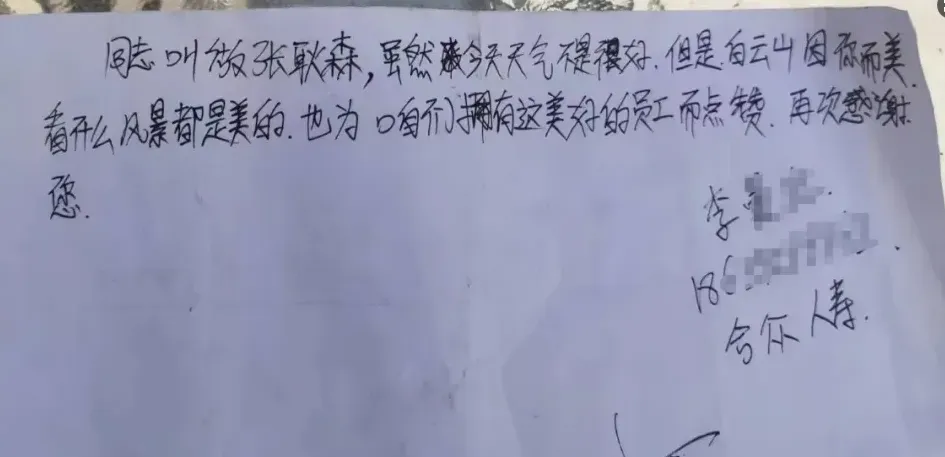 同志叫做张耿森，虽然今天天气不是很好.但是.白云山因你而美.
看什么风景都是美的.也为咱们拥有这美好的员工而点赞.再次感谢
您.
李
18
人寿.